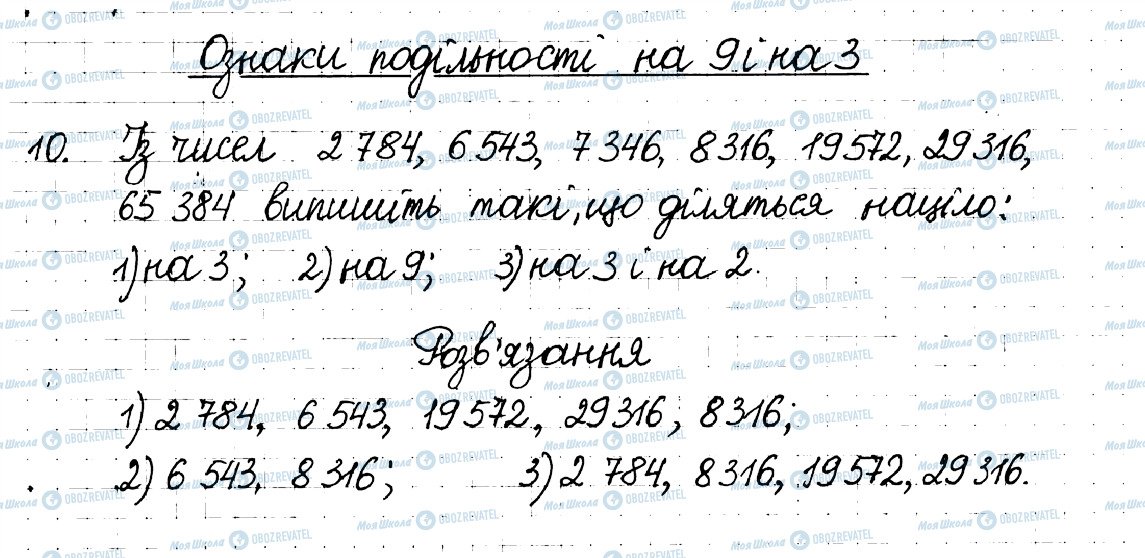 Ознаки подільності на 9 і на 3
10. Із чисел 2 784, 6 543, 7 346, 8 316, 19 572, 29 316,
65 384 випишіть такі, що діляться націло:
1) на 3; 2) на 9; 3) на 3 і на 2.
Розв'язання
1) 2 784, 6 543, 19 572, 29 316, 8 316;
2) 6 543, 8 316; 3) 2 784, 8 316, 19 572, 29 316.
МояШкола OBOZREVATEL